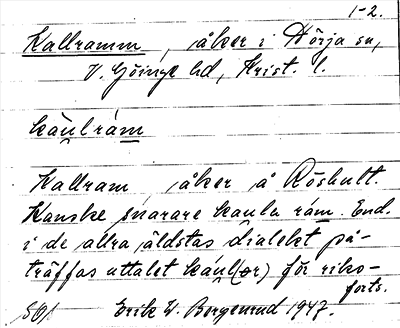 1-2.
Kallramm, åker i Nörja sn,
V. Göinge hd, Krist. l.
kau̯lrám
Kallram, åker å Röshult.
Kanske snarare kau̯la rám. End.
i de allra äldstas dialekt på-
träffas uttalet káu̯l(ər) för riks-
forts.
Erik W. Borgenrud 1947.